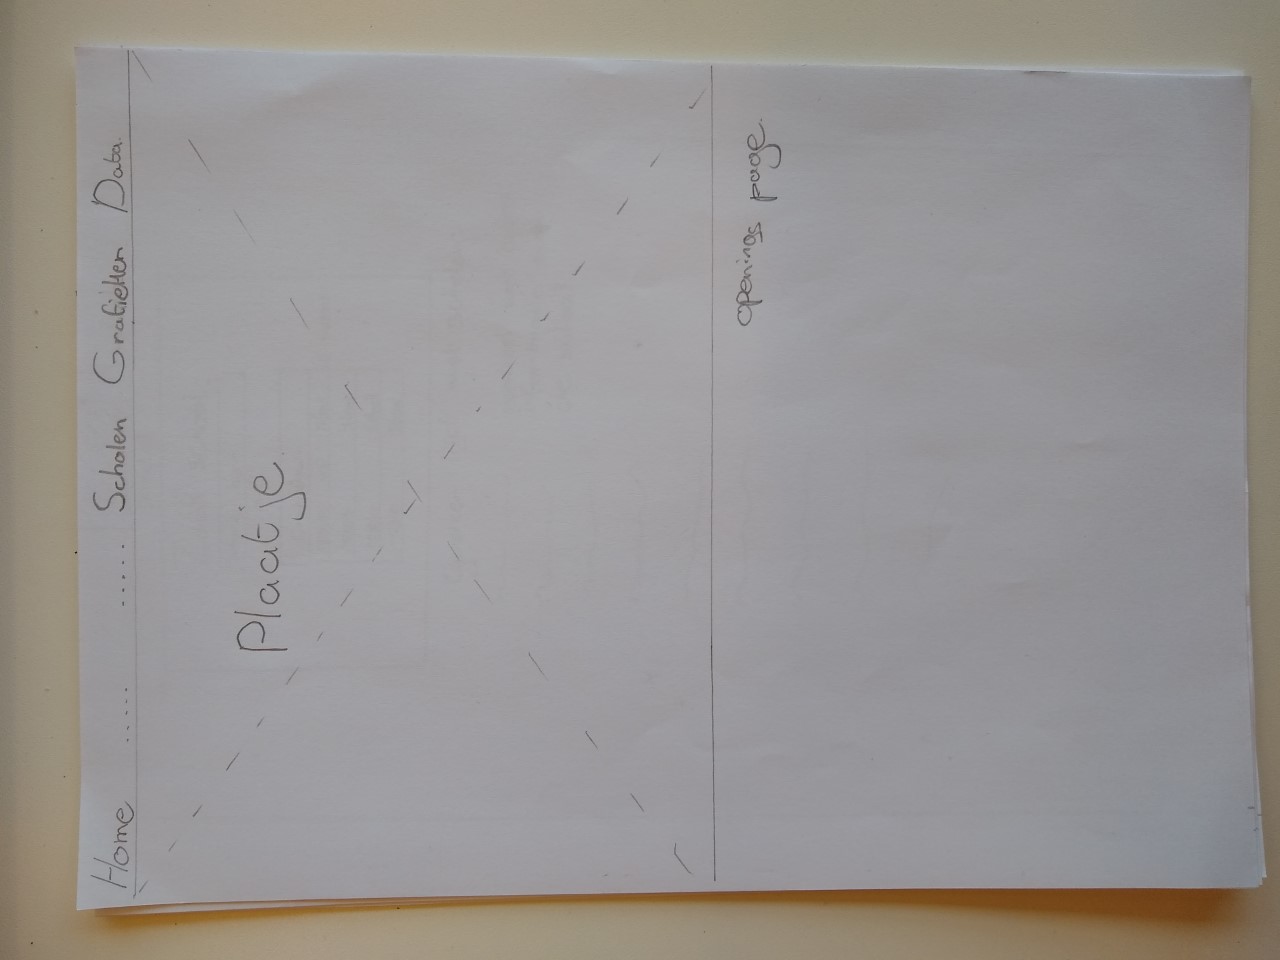 Home ..... ..... Scholen Grafieken Data.
Plaatje.
openings page.